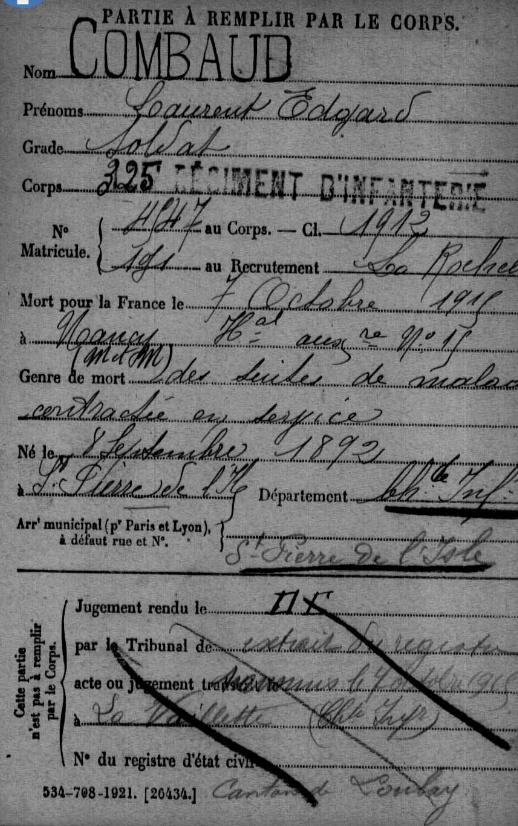 PARTIE À REMPLIR PAR LE CORPS.
Nom COMBAUD
Prénoms Laurent Edgard
Grade Soldat
Corps 325e RÉGIMENT D'INFANTERIE
N° Matricule. { 4447 au Corps. — Cl. 1912
au Recrutement La Rochel
Mort pour la France le 7 Octobre 1915
à Nancy Hal auxre N° 15
(M et M)
Genre de mort des suites de malad
contractée en service
Né le 8 Septembre 1892
à St Pierre de l'Ile Département Chte Infre
Arrt municipal (pr Paris et Lyon),
à défaut rue et N°.
St Pierre de l'Isle
Cette partie n'est pas à remplir par le Corps.
Jugement rendu le
par le Tribunal de extrait du registre
acte ou jugement transcrit le 7 octobre 1915
à La Villette (Chte Infre)
N° du registre d'état civil
534-708-1921. [26434.] Canton de Loulay